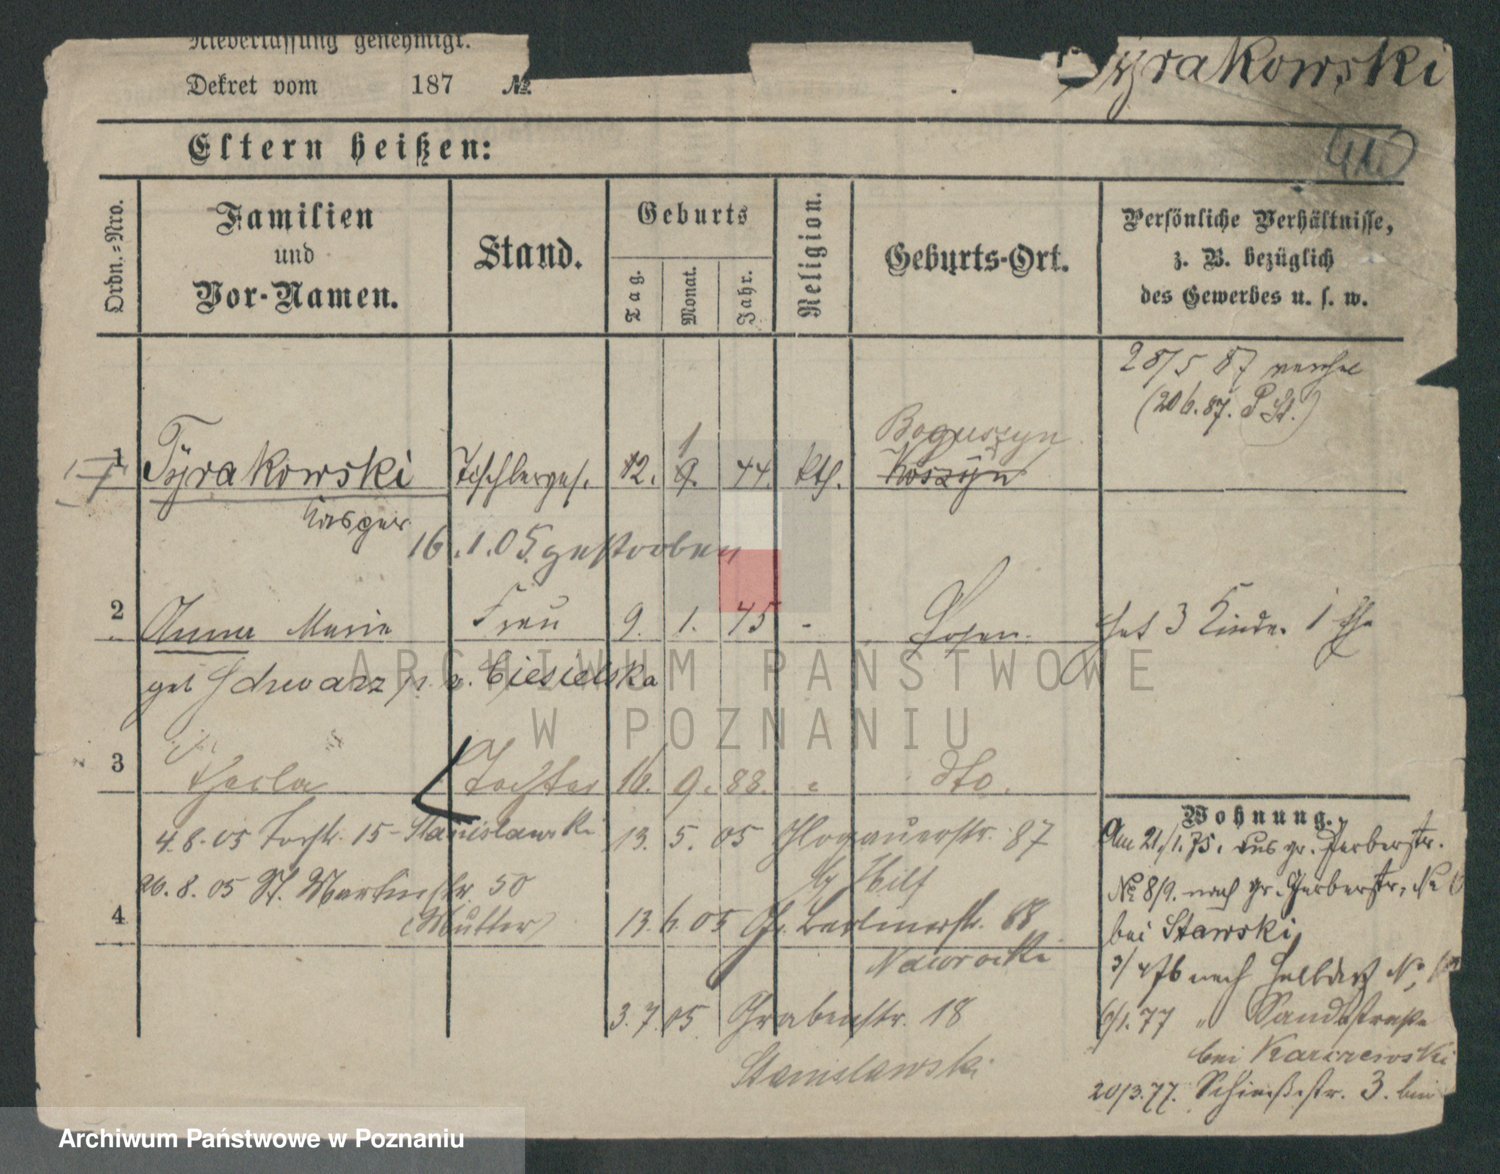 Niederlassung genehmigt.
Dekret vom 187 №
Tyrakowski
Eltern heißen:
Ordn.-Nro.
Familien
und
Vor-Namen.
Stand.
Geburts
Tag.
Monat.
Jahr.
Religion.
Geburts-Ort.
Persönliche Verhältnisse,
z. B. bezüglich
des Gewerbes u. s. w.
28/5 87
(20 6. 87. P St.)
1 Tyrakowski Tischlerges. 12. 9. 1 44. kth. Koszyn Boguszyn
Kasper
16.1.05. gestorben
2 Anna Marie Frau 9. 1. 45 - Posen. hat 3 Kinder 1 Ehe
geb Schwarz Ciesielska
3 Thecla Tochter 16. 9. 88. dto.
4.8.05 15 Stanislawski 13. 5. 05 Glogauerstr. 87
26.8.05 St. Martinstr. 50
(Mutter)
4 13.6.05 Gr. Berlinerstr. 88
Nawrocki
3.7.05 Grabenstr. 18
Stanislawski
Wohnung.
Am 21./1.75. aus gr. Gerberstr.
№ 8/9. nach gr. Gerberstr. №
bei Stawski
3/4 76 nach Halbdorf №
6/1.77 " Sandstraße
bei Karczewski
20/3.77. Schießstr. 3. bei
ARCHIWUM PAŃSTWOWE
W POZNANIU
Archiwum Państwowe w Poznaniu